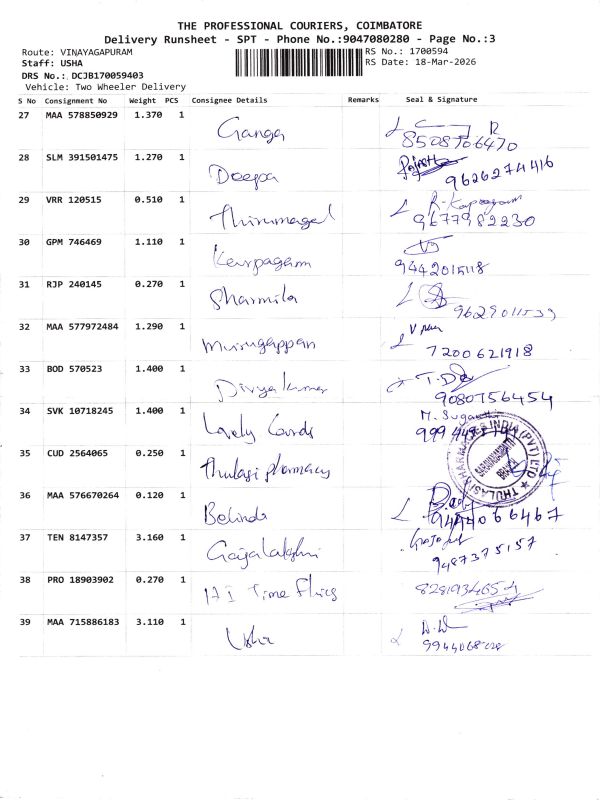 THE PROFESSIONAL COURIERS, COIMBATORE
Delivery Runsheet - SPT - Phone No.:9047080280 - Page No.:3
Route: VINAYAGAPURAM RS No.: 1700594
Staff: USHA RS Date: 18-Mar-2026
DRS No.: DCJB170059403
Vehicle: Two Wheeler Delivery
S No Consignment No Weight PCS Consignee Details Remarks Seal & Signature
27 MAA 578850929 1.370 1 Ganga R
8508706470
28 SLM 391501475 1.270 1 Deepa
9626274416
29 VRR 120515 0.510 1 Thirumagal R-Karpagam
9677982230
30 GPM 746469 1.110 1 Karpagam
9442015118
31 RJP 240145 0.270 1 Sharmila
9629011539
32 MAA 577972484 1.290 1 Murugappan
7200621918
33 BOD 570523 1.400 1 Divyakumar T.D
9080756454
34 SVK 10718245 1.400 1 Lovely Cards M. Suganthi
35 CUD 2564065 0.250 1 Thulasi pharmacy
THULASI PHARMACIES INDIA (PVT) LTD
SARAVANAMPATTI
BRANCH
36 MAA 576670264 0.120 1 Belinda
9444066467
37 TEN 8147357 3.160 1 Gajalakshmi
9487375157
38 PRO 18903902 0.270 1 Time
8281934654
39 MAA 715886183 3.110 1 Usha